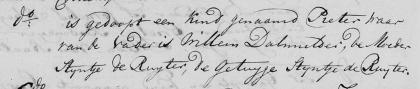 do. is gedoopt een kind, genaamd Pieter waar
van de vader is Willem Dalmulder, de Moeder
Styntje de Ruyter, de Getuyge Styntje de Ruyter.